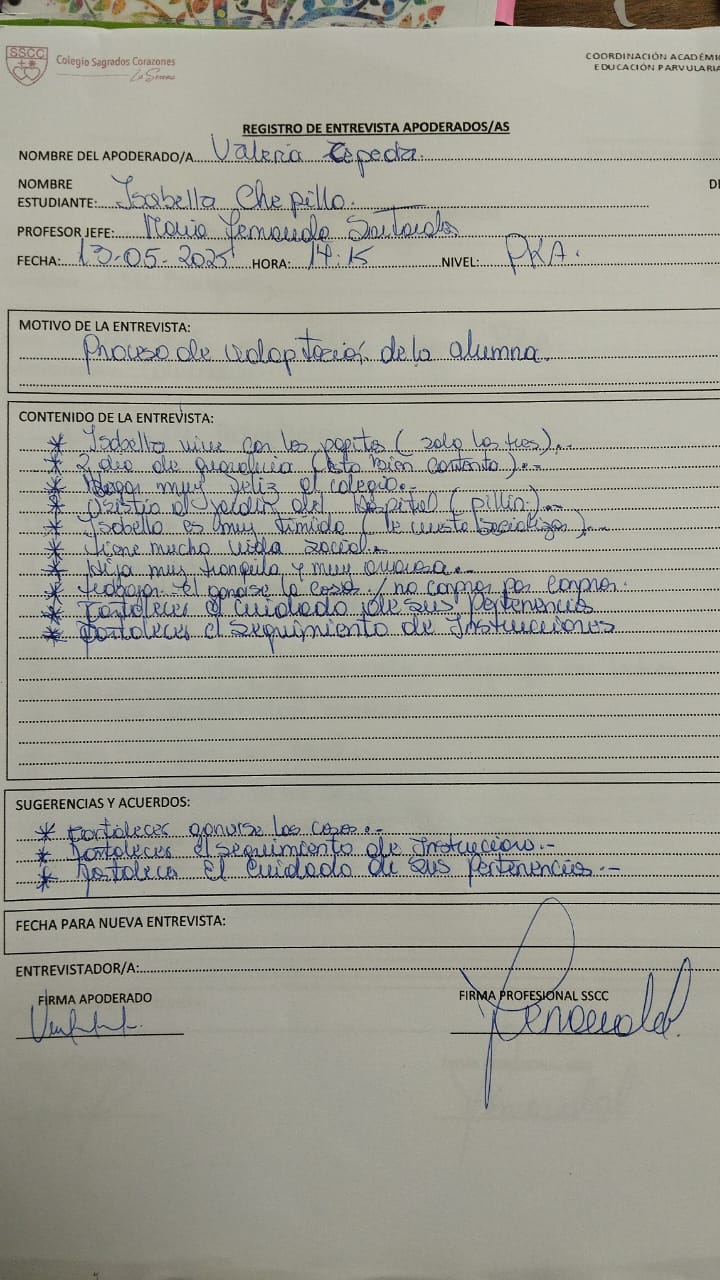 SSCC
Colegio Sagrados Corazones
La Serena
COORDINACIÓN ACADÉMI
EDUCACIÓN PARVULARIA
REGISTRO DE ENTREVISTA APODERADOS/AS
NOMBRE DEL APODERADO/A Valeria Zepeda.
NOMBRE
ESTUDIANTE: Isabella Chepillo.
DE
PROFESOR JEFE: Maria Fernanda
FECHA: 13-05-2025 HORA: 14:15 NIVEL: PKA.
MOTIVO DE LA ENTREVISTA:
Proceso de adaptación de la alumna.
CONTENIDO DE LA ENTREVISTA:
* Isabella vive con los papitos (solo los tres)..
* 2 dia de (esta bien contenta)..-
* muy feliz al colegio.-
* Asistio al Jardin del Hospital (pillin).-
* Isabella es muy timida (le cuesta socializar).
* Tiene mucha vida social..
* Hija muy tranquila y muy amorosa..-
* trabajar el ganarse la cosas / no comprar por comprar.
* Fortalecer el cuidado de sus pertenencias
* Fortalecer el seguimiento de Instrucciones
SUGERENCIAS Y ACUERDOS:
* Fortalecer ganarse las cosas..-
* Fortalecer el seguimiento de Instruccion.-
* Fortalecer el cuidado de sus pertenencias.-
FECHA PARA NUEVA ENTREVISTA:
ENTREVISTADOR/A:
FIRMA APODERADO
FIRMA PROFESIONAL SSCC